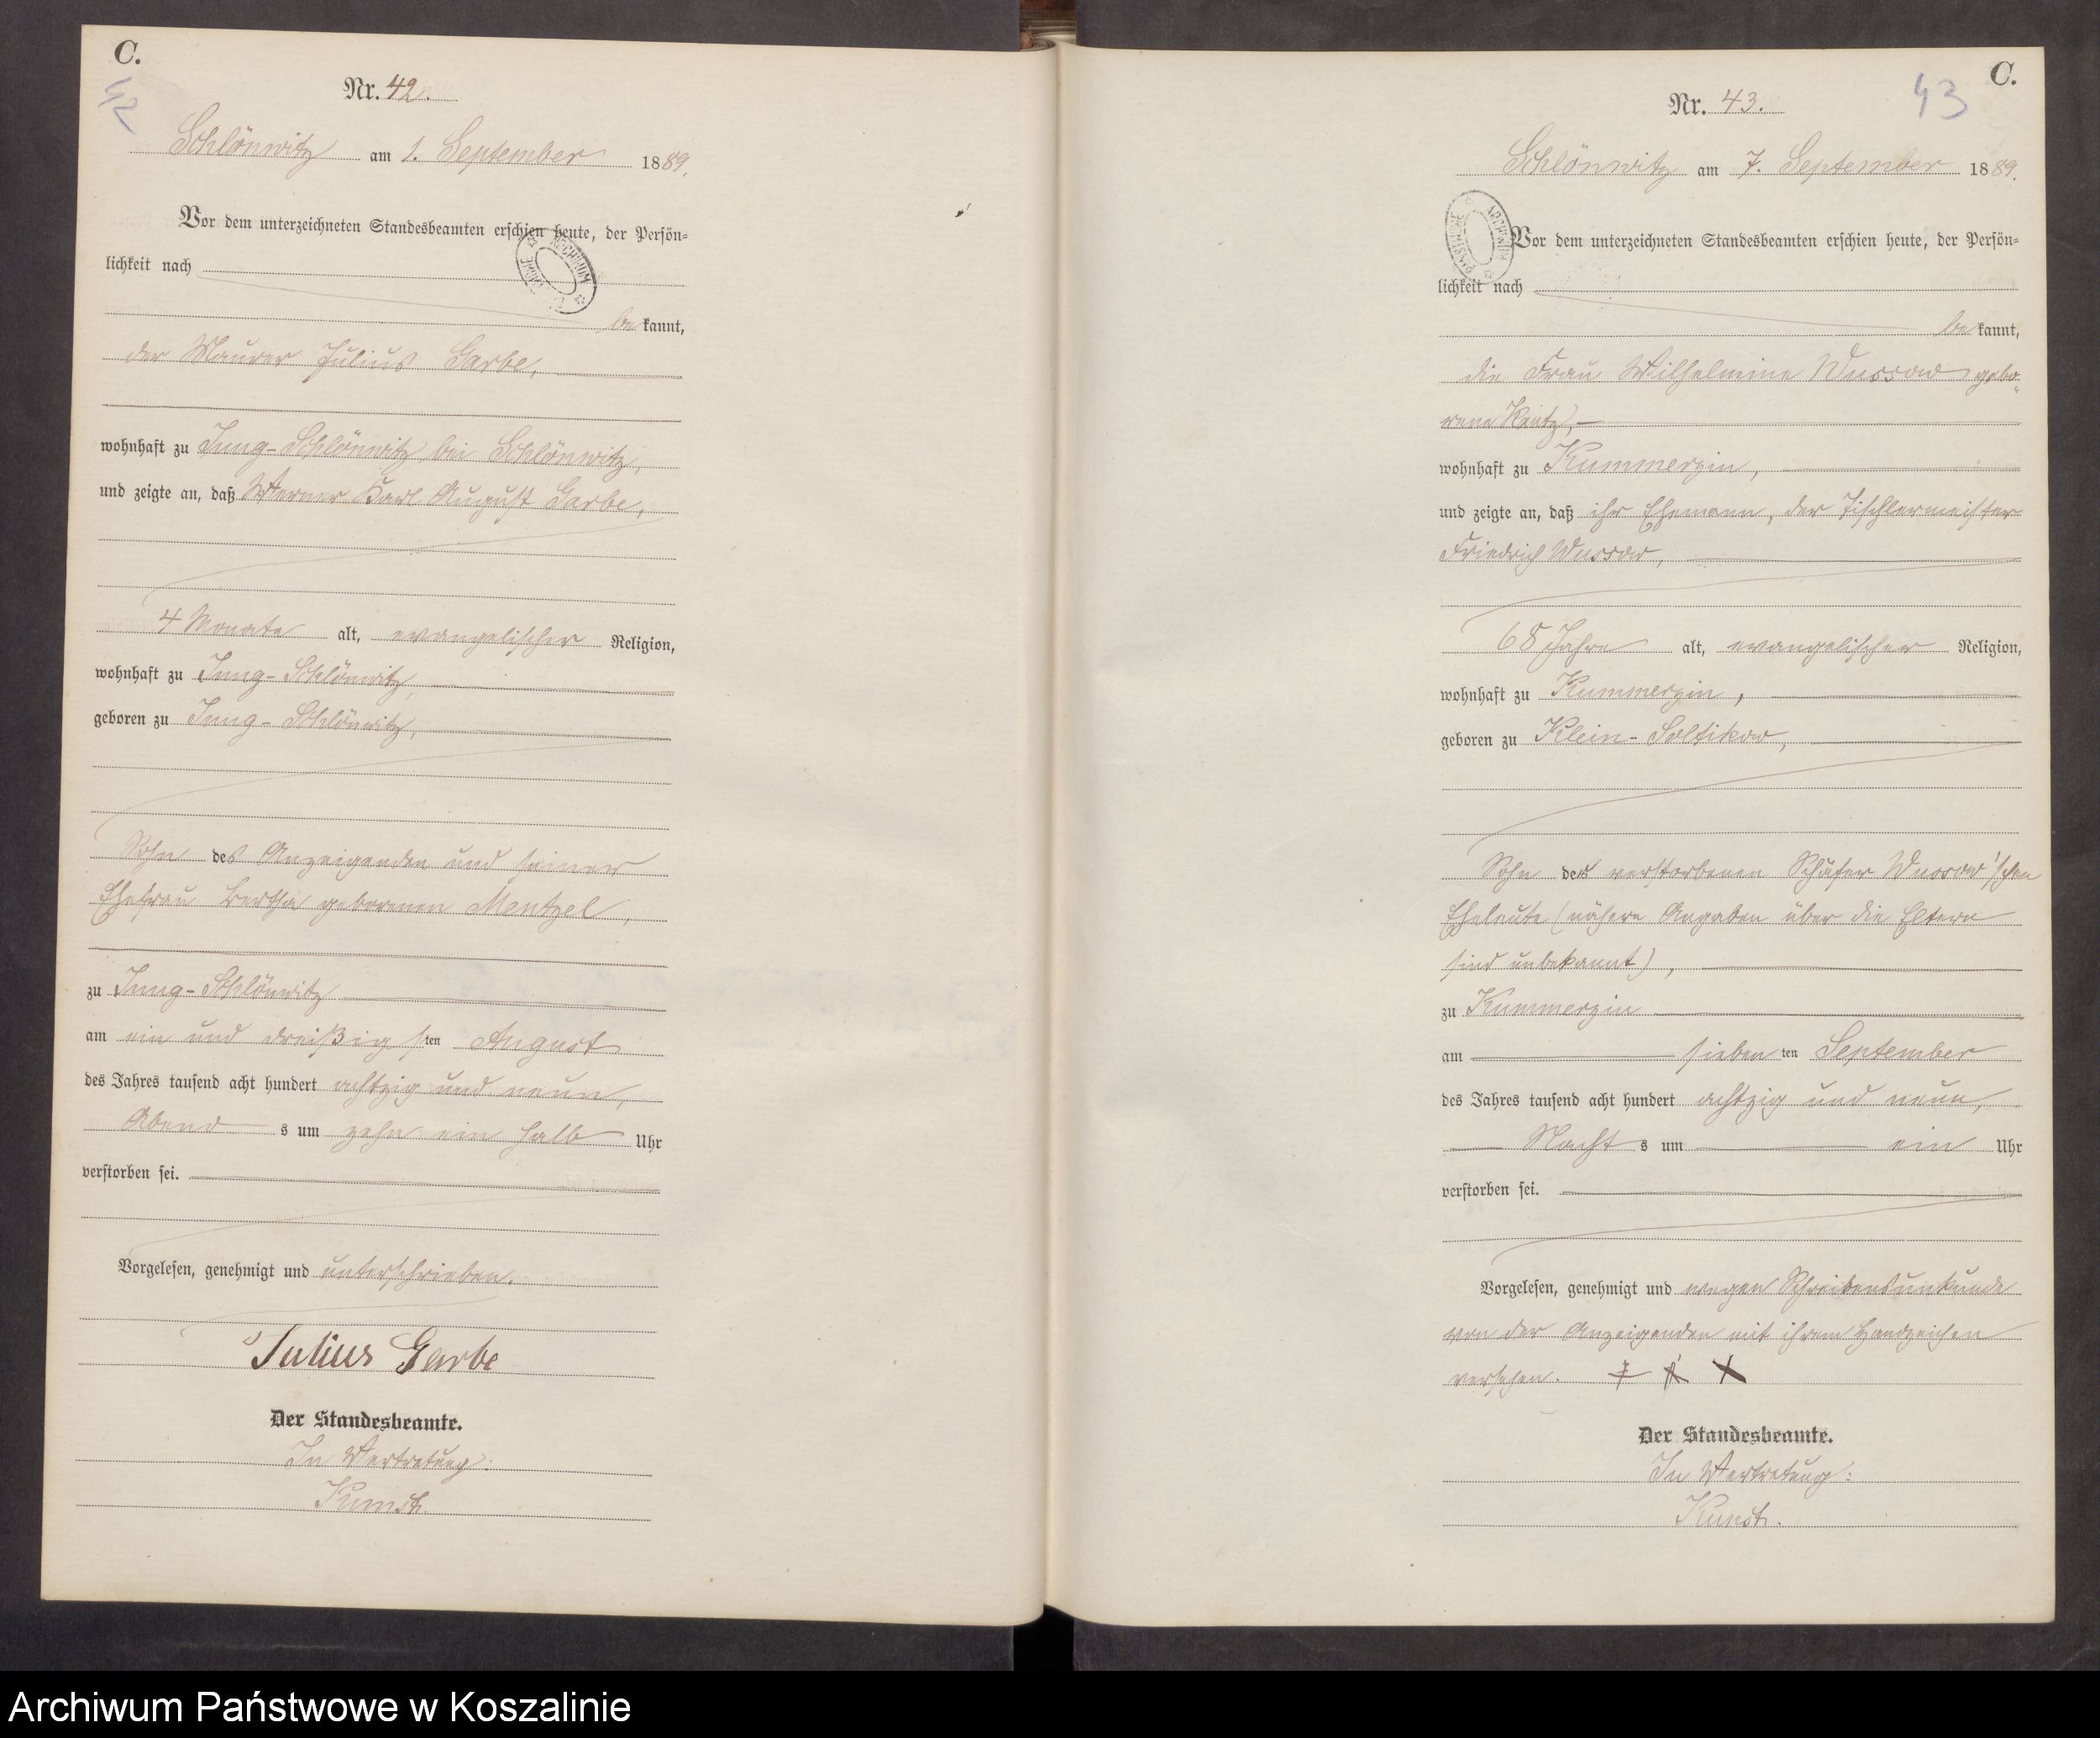 C.
42
Nr. 42.
Schlönwitz am 1. September 1889.
Vor dem unterzeichneten Standesbeamten erschien heute, der Persön-
lichkeit nach
bekannt,
der Maurer Julius Garbe,
wohnhaft zu Jung-Schlönwitz bei Schlönwitz,
und zeigte an, daß Werner Karl August Garbe,
4 Monate alt, evangelischer Religion,
wohnhaft zu Jung-Schlönwitz,
geboren zu Jung-Schlönwitz,
Sohn des Anzeigenden und seiner
Ehefrau Bertha geborenen Mentzel,
zu Jung-Schlönwitz
am ein und dreißigsten August
des Jahres tausend acht hundert achtzig und neun,
Abends um zehn ein halb Uhr
verstorben sei.
Vorgelesen, genehmigt und unterschrieben.
Julius Garbe
Der Standesbeamte.
In Vertretung:
C.
43
Nr. 43.
Schlönwitz am 7. September 1889.
Vor dem unterzeichneten Standesbeamten erschien heute, der Persön-
lichkeit nach
bekannt,
die Frau Wilhelmine Wussow gebo-
rene
wohnhaft zu Kummerzin,
und zeigte an, daß ihr Ehemann, der Tischlermeister
Friedrich Wussow,
68 Jahre alt, evangelischer Religion,
wohnhaft zu Kummerzin,
geboren zu Klein-Soltikow,
Sohn der verstorbenen Schäfer Wussow'schen
Eheleute (nähere Angaben über die Eltern
sind unbekannt),
zu Kummerzin
am siebenten September
des Jahres tausend acht hundert achtzig und neun,
Nachts um ein Uhr
verstorben sei.
Vorgelesen, genehmigt und wegen Schreibensunkunde
von der Anzeigenden mit ihrem Handzeichen
versehen. + + +
Der Standesbeamte.
In Vertretung:
Archiwum Państwowe w Koszalinie